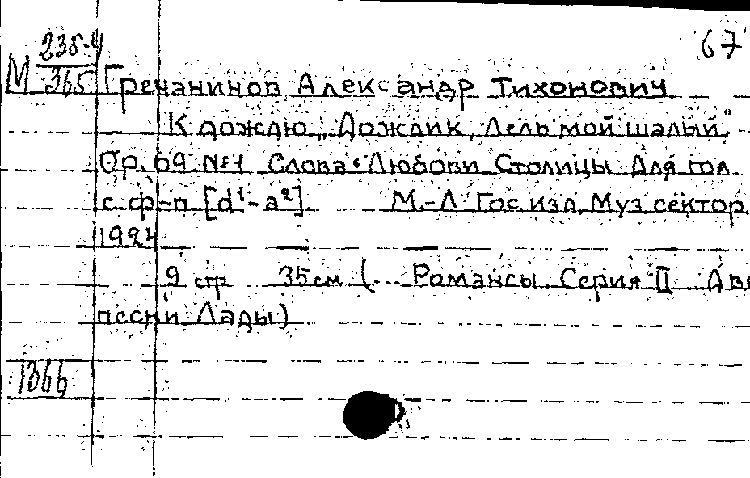 67
М 235-4
365 Гречанинов Александр Тихонович
К дождю „Дождик, Лель мой шалый"
Ор. 69 №1 Слова Любови Столицы Для гол
с ф-п [d¹-a²] М.-Л Гос изд. Муз сектор
1924
9 стр 35 см (... Романсы Серия II Дв
песни Лады)
1366